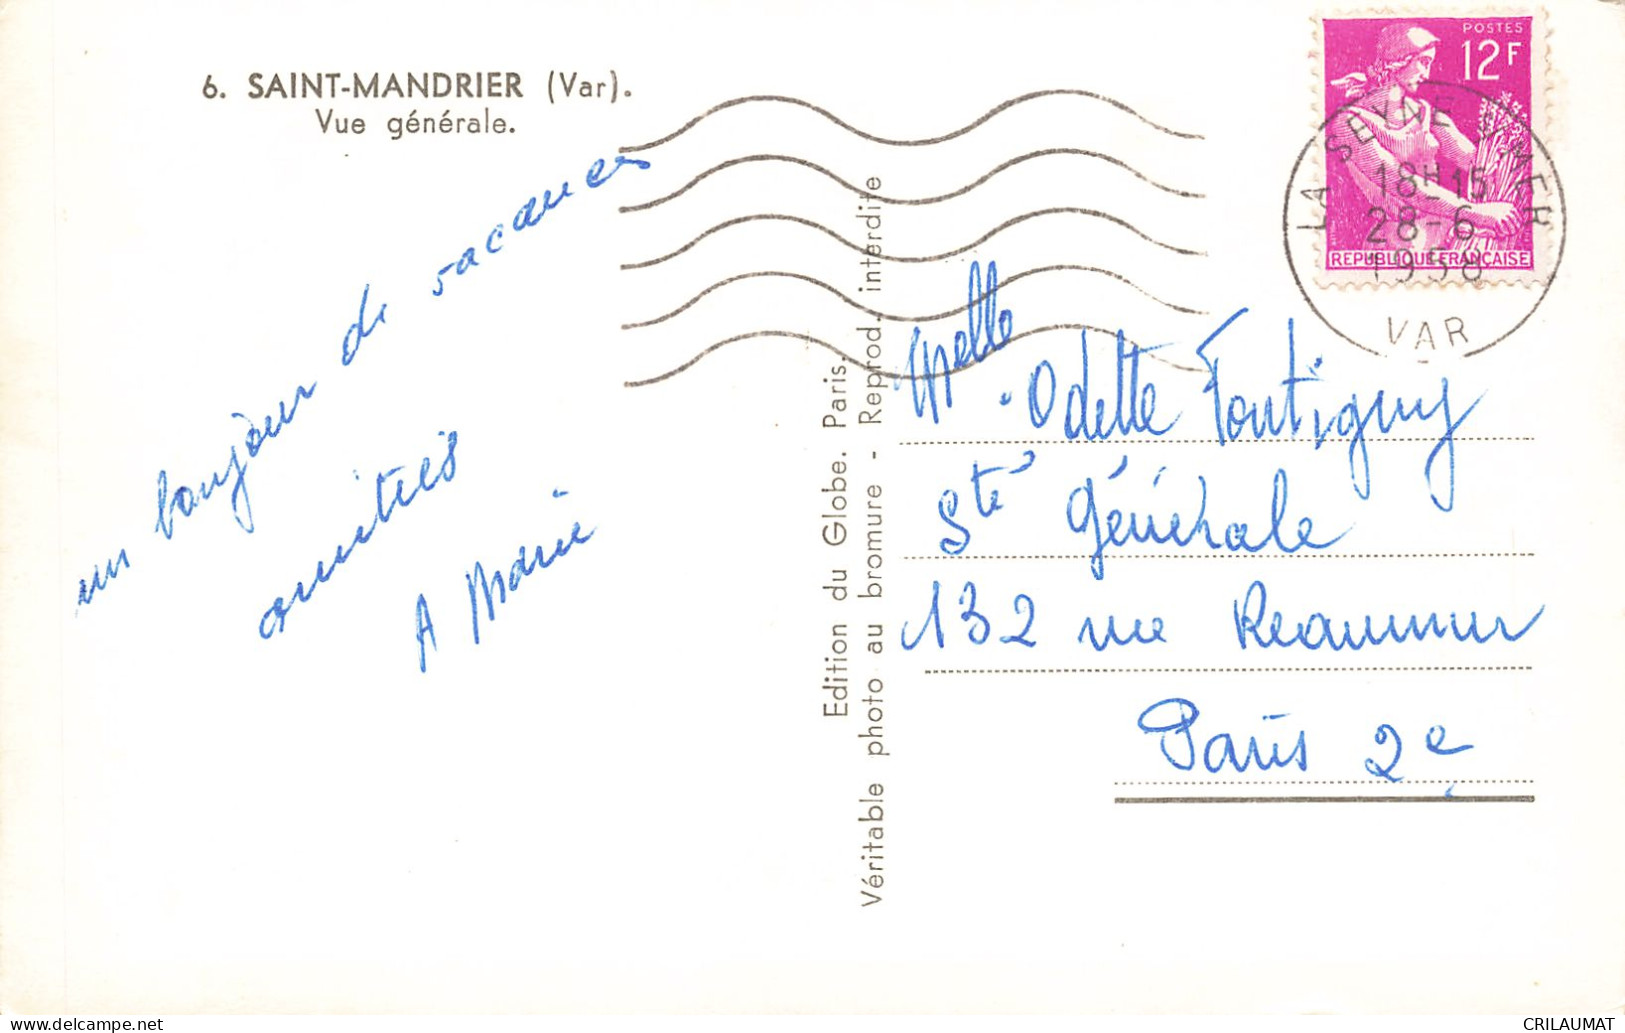 6. SAINT-MANDRIER (Var).
Vue générale.
un bonjour de vacances
amitiés
A Marie
Edition du Globe. Paris.
Véritable photo au bromure - Reprod. interdite
POSTES
12F
REPUBLIQUE FRANÇAISE
LA SEYNE S MER
18H15
28-6
1958
VAR
Melle Odette Fontigny
Sté Générale
132 rue Reaumur
Paris 2e
CRILAUMAT